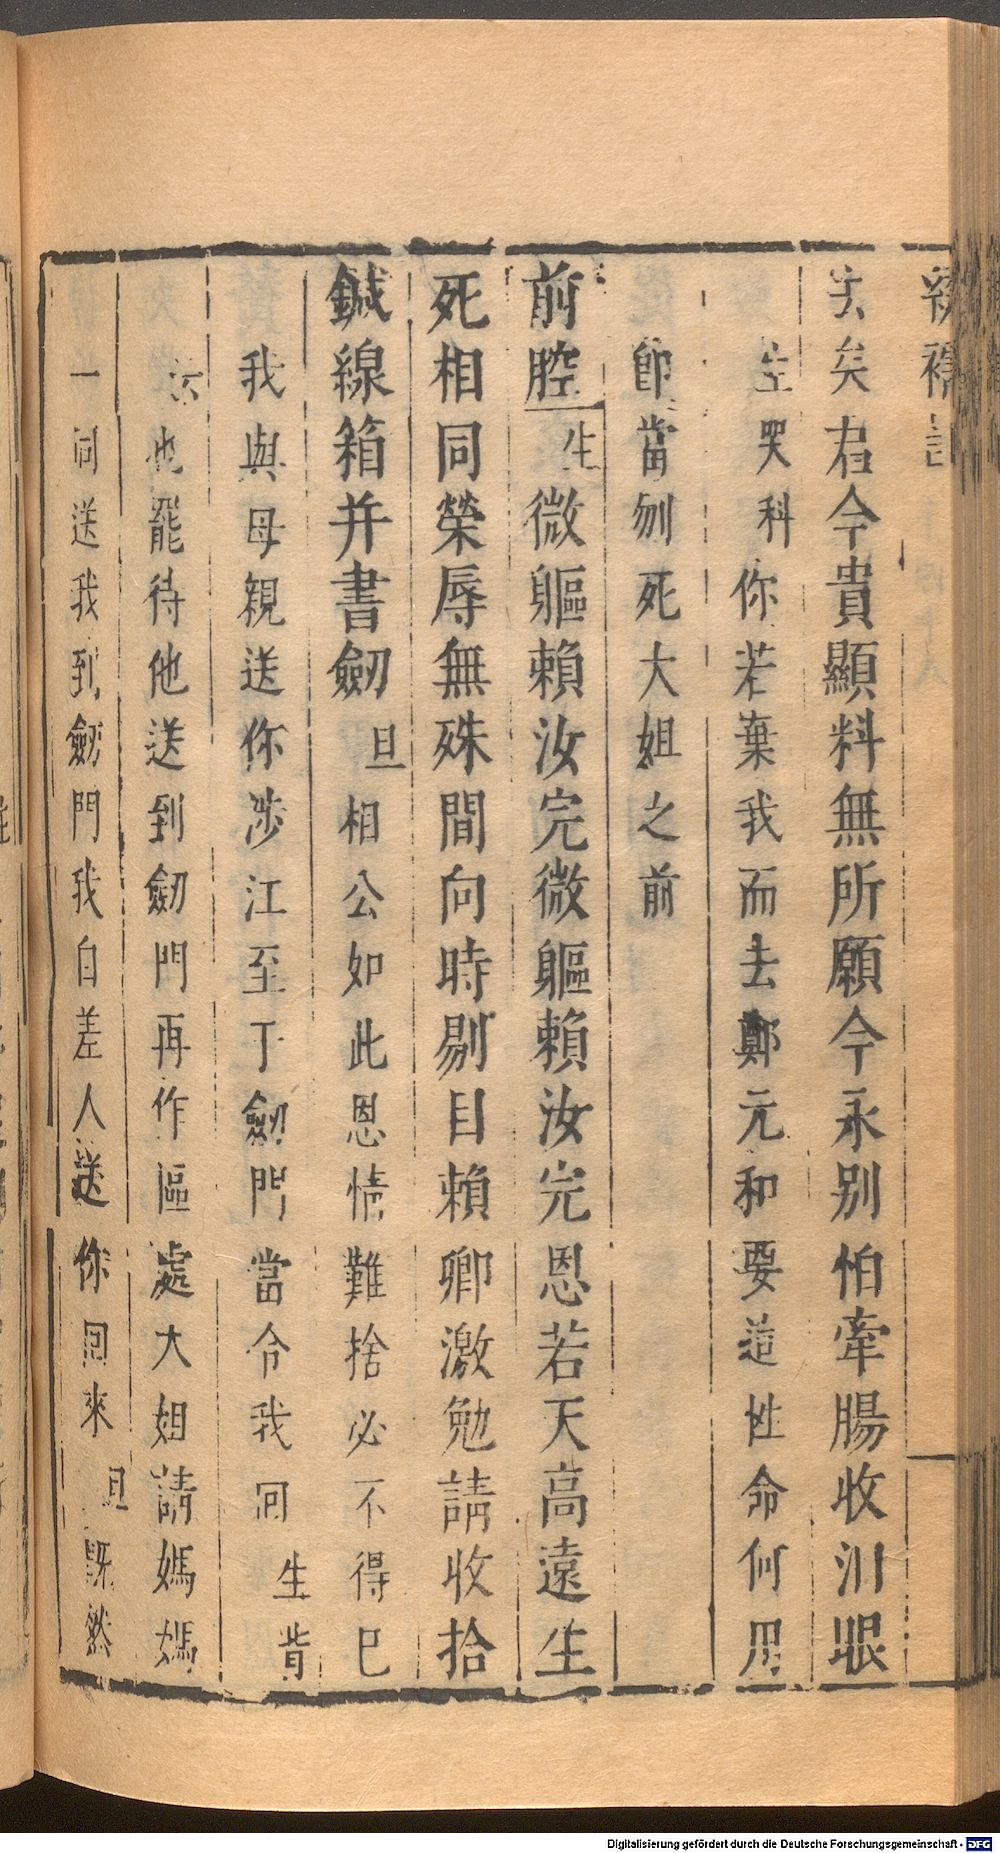 繡襦記
去矣君今貴顯料無所願今永别怕牽腸收淚眼
生哭科你若棄我而去鄭元和要這性命何用
卽當刎死大姐之前
前腔生微軀賴汝完微軀賴汝完恩若天高遠生
死相同榮辱無殊間向時剔目賴卿激勉請收拾
鍼線箱并書劒旦相公如此恩情難捨必不得已
我與母親送你涉江至于劒門當令我囘生背
云也罷待他送到劒門再作區處大姐請媽媽
一同送我到劒門我自差人送你囘來旦旣然
Digitalisierung gefördert durch die Deutsche Forschungsgemeinschaft - DFG